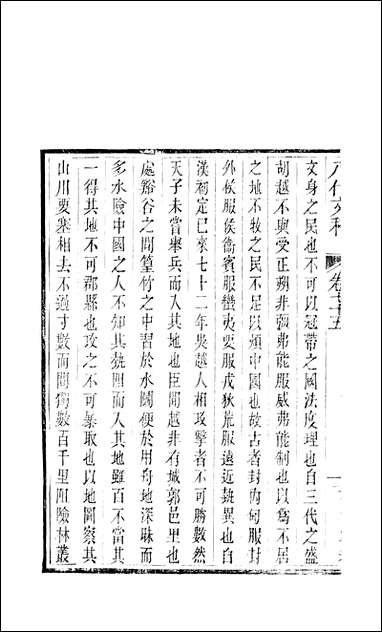 八代文粹　卷二十五
文身之民也不可以冠帶之國法度理也自三代之盛
胡越不與受正朔非彊弗能服威弗能制也以爲不居
之地不牧之民不足以煩中國也故古者封內甸服封
外侯服侯衞賓服蠻夷要服戎狄荒服遠近埶異也自
漢初定已來七十二年吳越人相攻擊者不可勝數然
天子未嘗舉兵而入其地也臣聞越非有城郭邑里也
處谿谷之間篁竹之中習於水鬭便於用舟地深昧而
多水險中國之人不知其埶阻而入其地雖百不當其
一得其地不可郡縣也攻之不可暴取也以地圖察其
山川要塞相去不過寸數而間獨數百千里阻險林叢